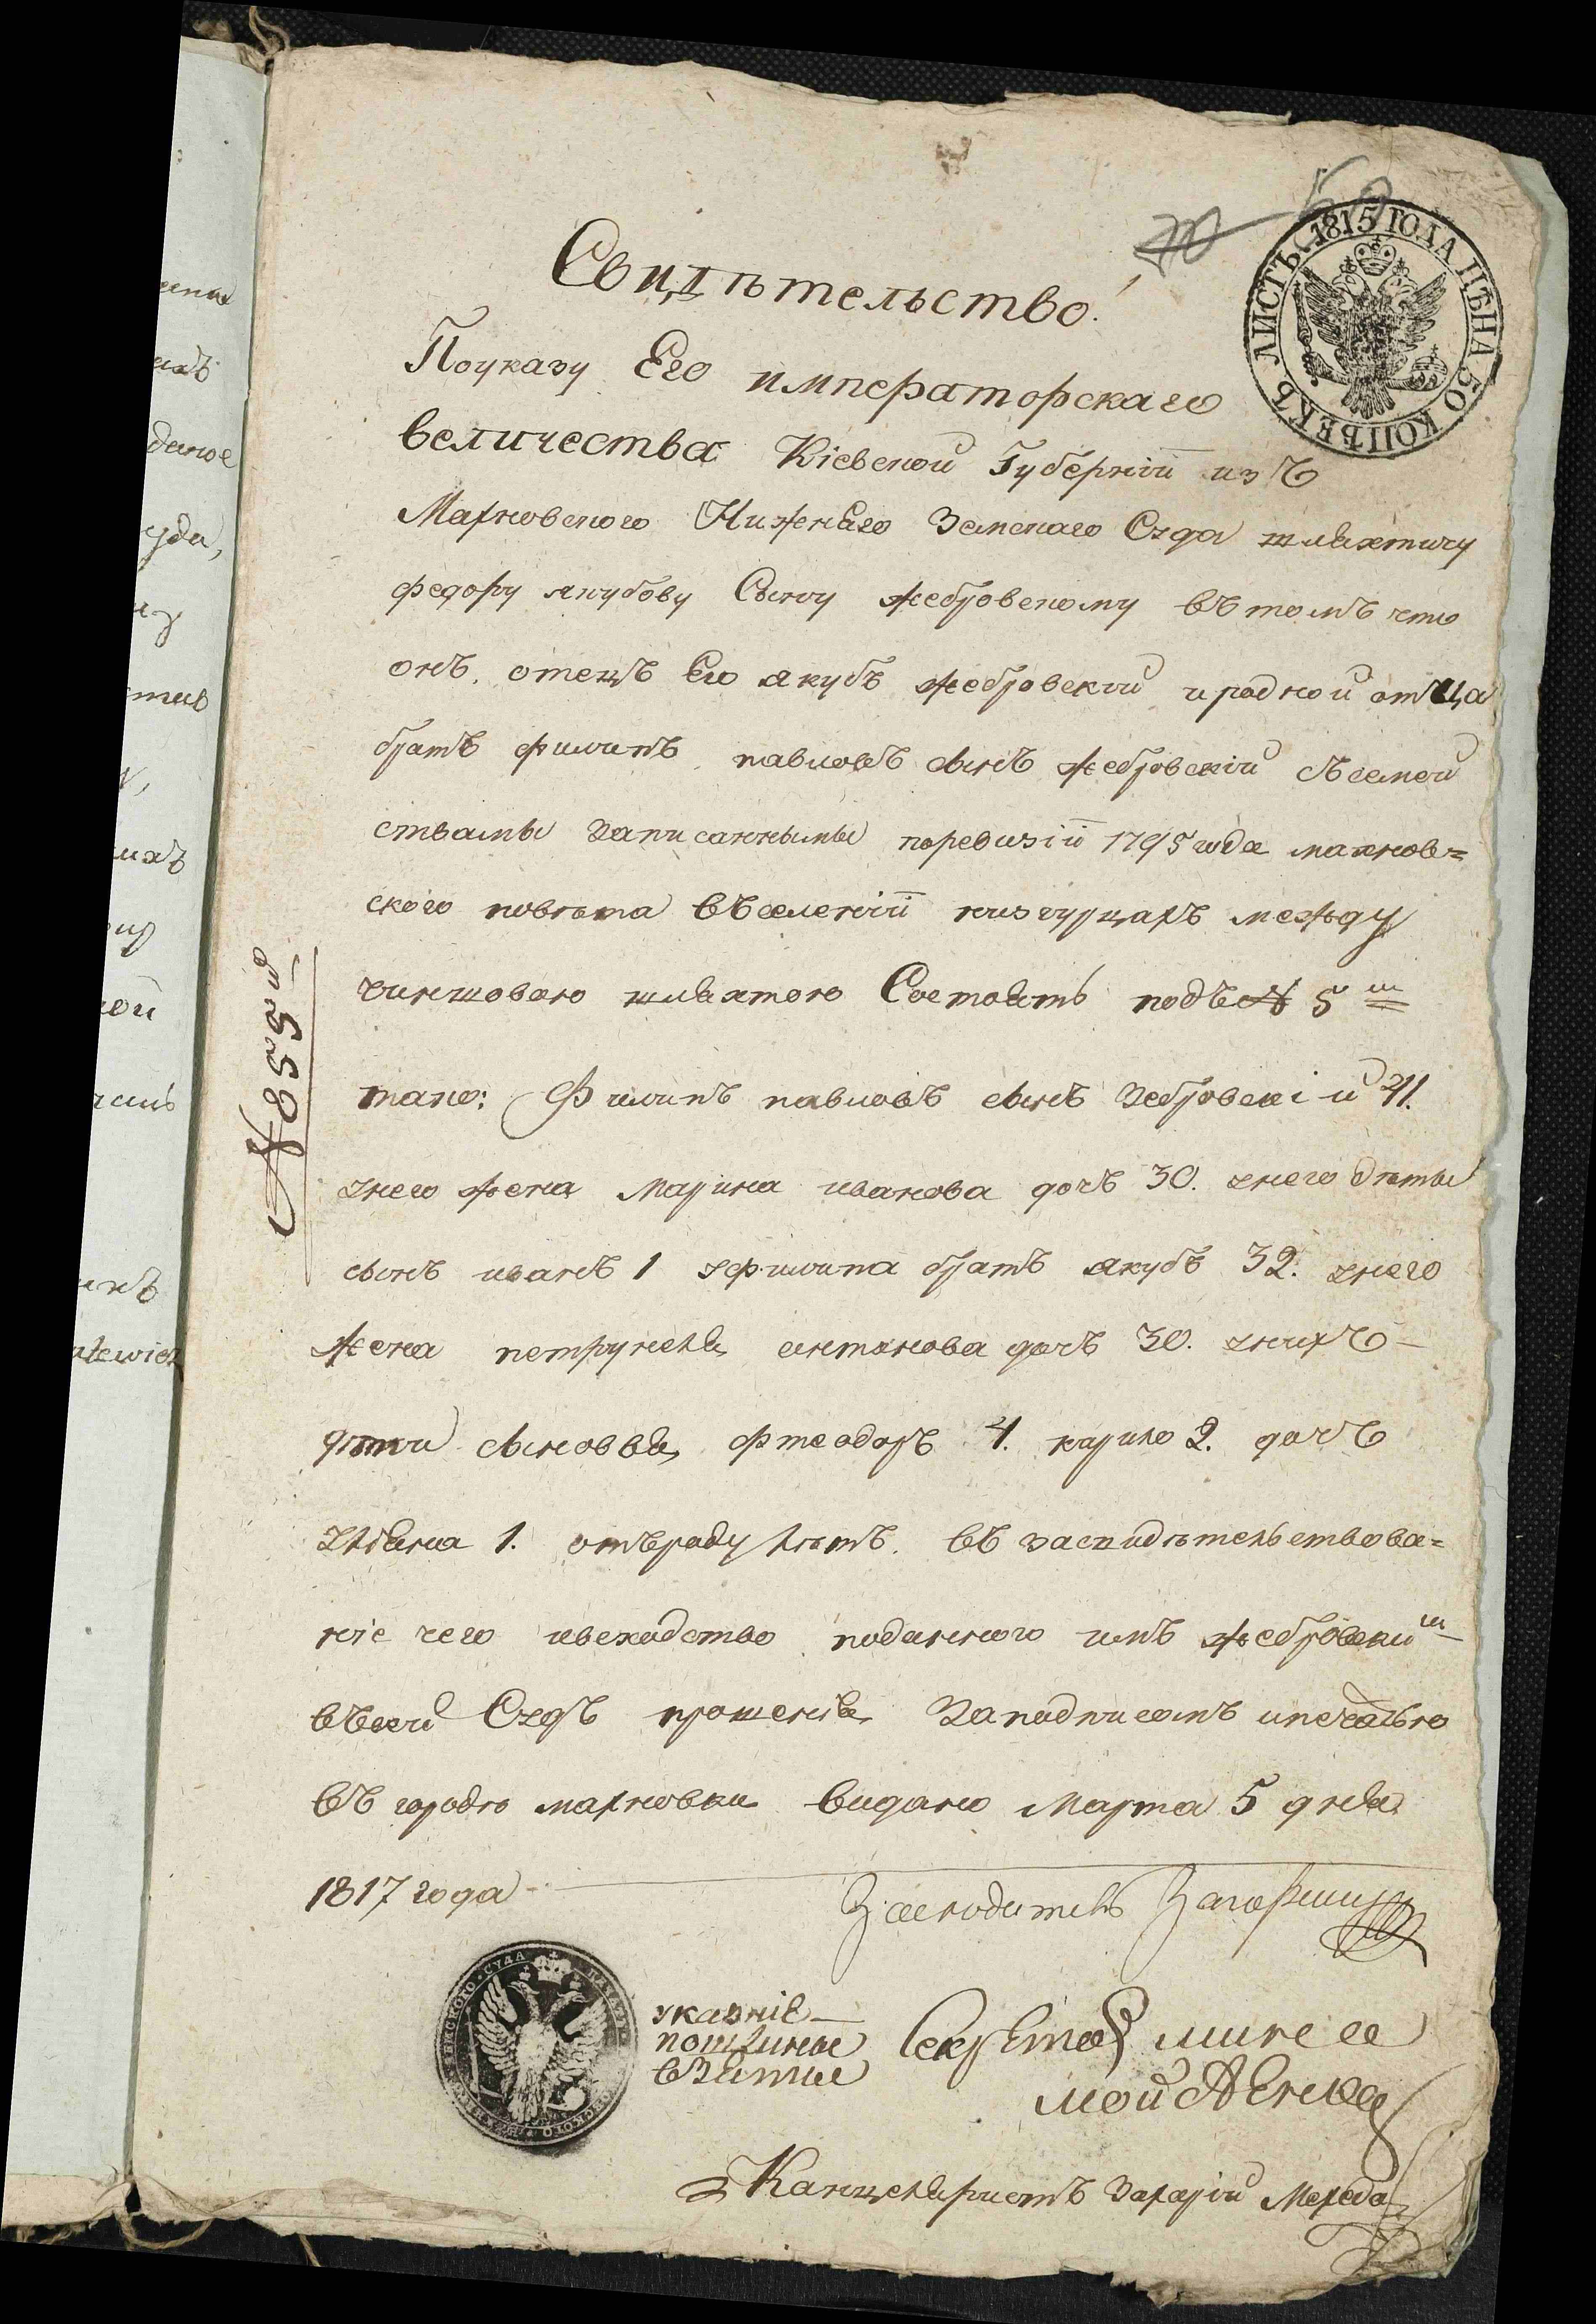 50
ЛИСТЪ 1815 ГОДА ЦѢНА 50 КОПѢЕКЪ
Свидѣтельство.
Поуказу Его императорскаго
величества Кіевской Губерніи изъ
Махновского Нижняго Земскаго Суда шляхтичу
федору якубову Сыну жебровскому въ томъ что
онъ. отецъ Его якубъ жебровскій и родной отца
братъ филипъ павловъ сынъ жебровскій съ семей
ствамы Записаннымы поревизіи 1795 года махнов=
ского повѣта въ селеніи между
чиншовою шляхтою Состоятъ подъ № 5 м
тако: Филипъ павловъ сынъ Зебровскій 41.
унего жена Марина иванова дочъ 30. унего дѣты
сынъ иванъ 1 уфилипа братъ якубъ 32. унего
жена петрунеля антонова дочъ 30. унихъ
дѣти сыновья фтеодоръ 4. карило 2. дочъ
1. отъроду лѣтъ. въ засвидѣтельствова=
ніе чего ивсходство поданного имъ жебровским
въсей Судъ прошенія Заподписомъ ипечатью
въ городѣ махновки видано Марта 5 дня
1817 года
№ 855 й
указніе
пошлины
взяты
Секретар
Канцеляристъ Захарій